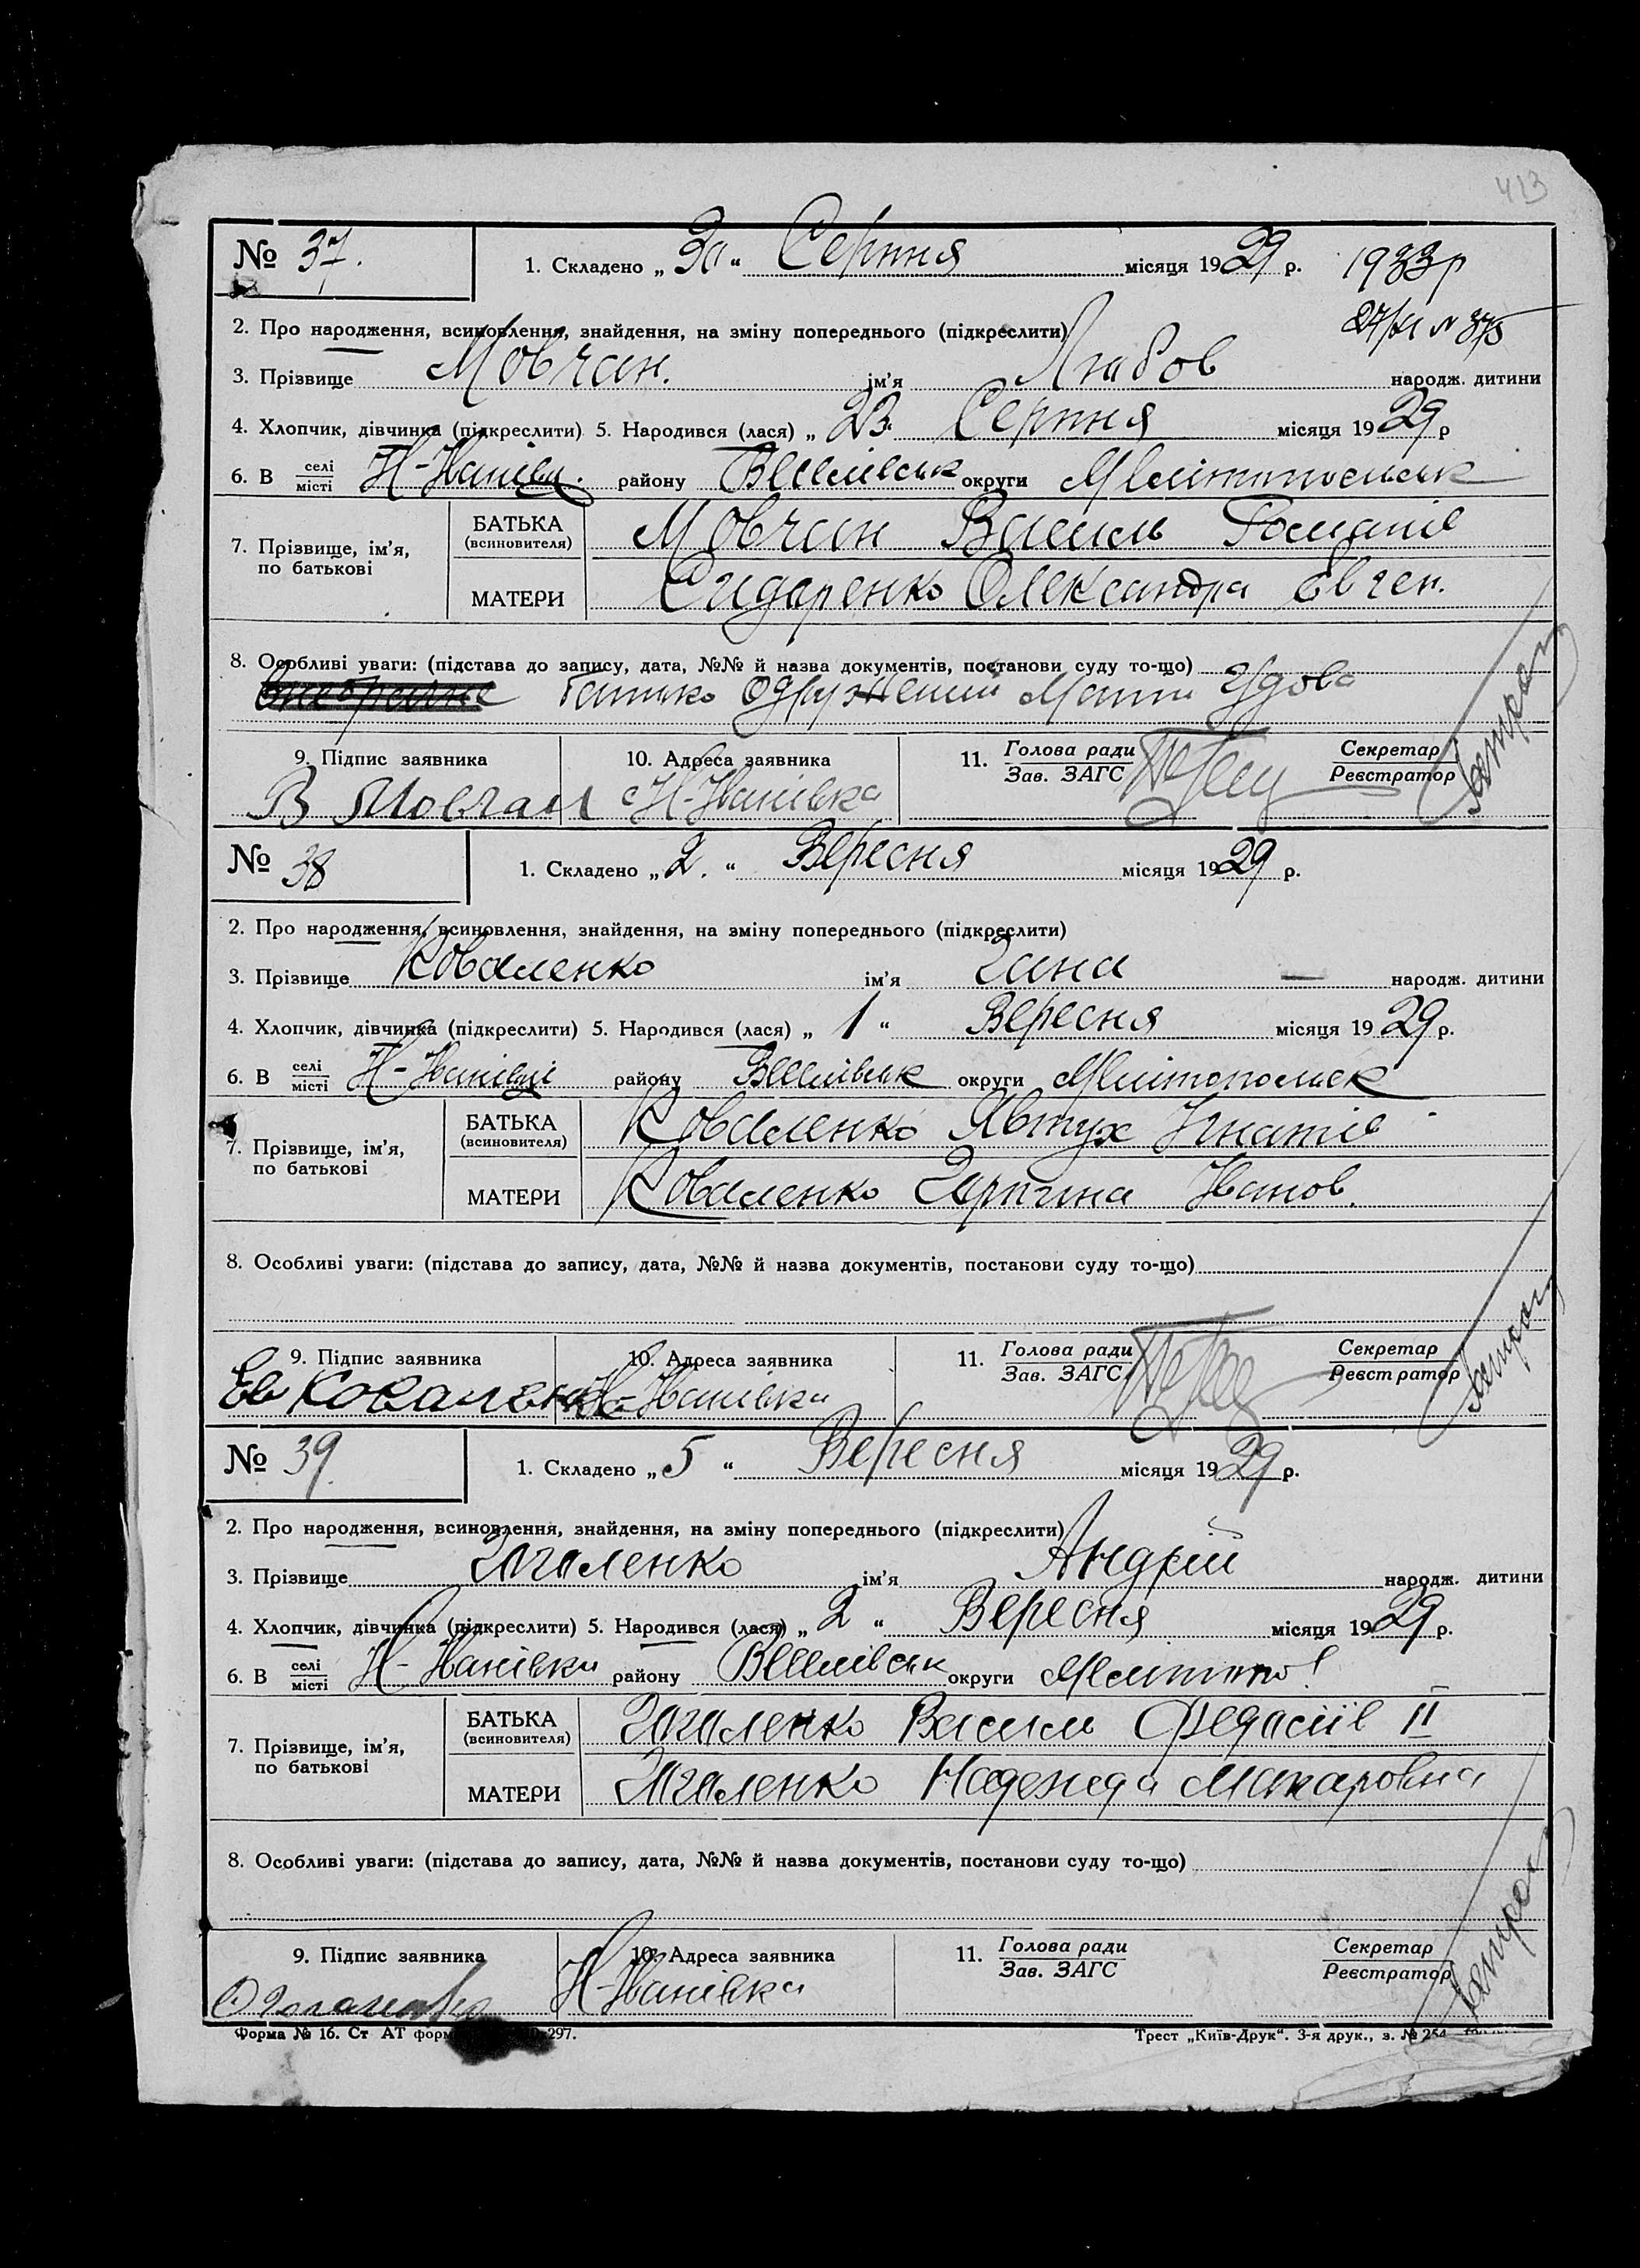 413
№ 37. 1. Складено „ 30 “ Серпня місяця 1929 р. 1933р
2. Про народження, всиновлення, знайдення, на зміну попереднього (підкреслити)
3. Прізвище Мовчан. ім’я Любов народж. дитини
4. Хлопчик, дівчинка (підкреслити) 5. Народився (лася) „ 23 Серпня місяця 1929 р
6. В селі місті Н-Іванівці району округи
7. Прізвище, ім’я, по батькові БАТЬКА (всиновителя) Мовчан Василь
МАТЕРИ Сидаренко Олександра Евген.
8. Особливі уваги: (підстава до запису, дата, №№ й назва документів, постанови суду то-що)
батько Одружений мати Удова
9. Підпис заявника 10. Адреса заявника 11. Голова ради Зав. ЗАГС Секретар Реєстратор
В Мовчан Н-Іванівка
№ 38 1. Складено „ 2. “ Вересня місяця 1929 р.
2. Про народження, всиновлення, знайдення, на зміну попереднього (підкреслити)
3. Прізвище Коваленко ім’я Ганна народж. дитини
4. Хлопчик, дівчинка (підкреслити) 5. Народився (лася) „ 1 “ Вересня місяця 1929 р.
6. В селі місті Н-Іванівці району округи
7. Прізвище, ім’я, по батькові БАТЬКА (всиновителя) Коваленко Явтух Игнатів
МАТЕРИ Коваленко Іванов.
8. Особливі уваги: (підстава до запису, дата, №№ й назва документів, постанови суду то-що)
9. Підпис заявника 10. Адреса заявника 11. Голова ради Зав. ЗАГС Секретар Реєстратор
Ев Коваленко Н-Іванівка
№ 39. 1. Складено „ 5 “ Вересня місяця 1929 р.
2. Про народження, всиновлення, знайдення, на зміну попереднього (підкреслити)
3. Прізвище Загаленко ім’я Андрій народж. дитини
4. Хлопчик, дівчинка (підкреслити) 5. Народився (лася) „ 2 “ Вересня місяця 1929 р.
6. В селі місті Н-Іванівка району округи
7. Прізвище, ім’я, по батькові БАТЬКА (всиновителя) Загаленко Василь II
МАТЕРИ Загаленко Надежда Макаровна
8. Особливі уваги: (підстава до запису, дата, №№ й назва документів, постанови суду то-що)
9. Підпис заявника 10. Адреса заявника 11. Голова ради Зав. ЗАГС Секретар Реєстратор
Н-Іванівка
Форма № 16. Ст АТ 297. Трест „Київ-Друк“. 3-я друк., з. №